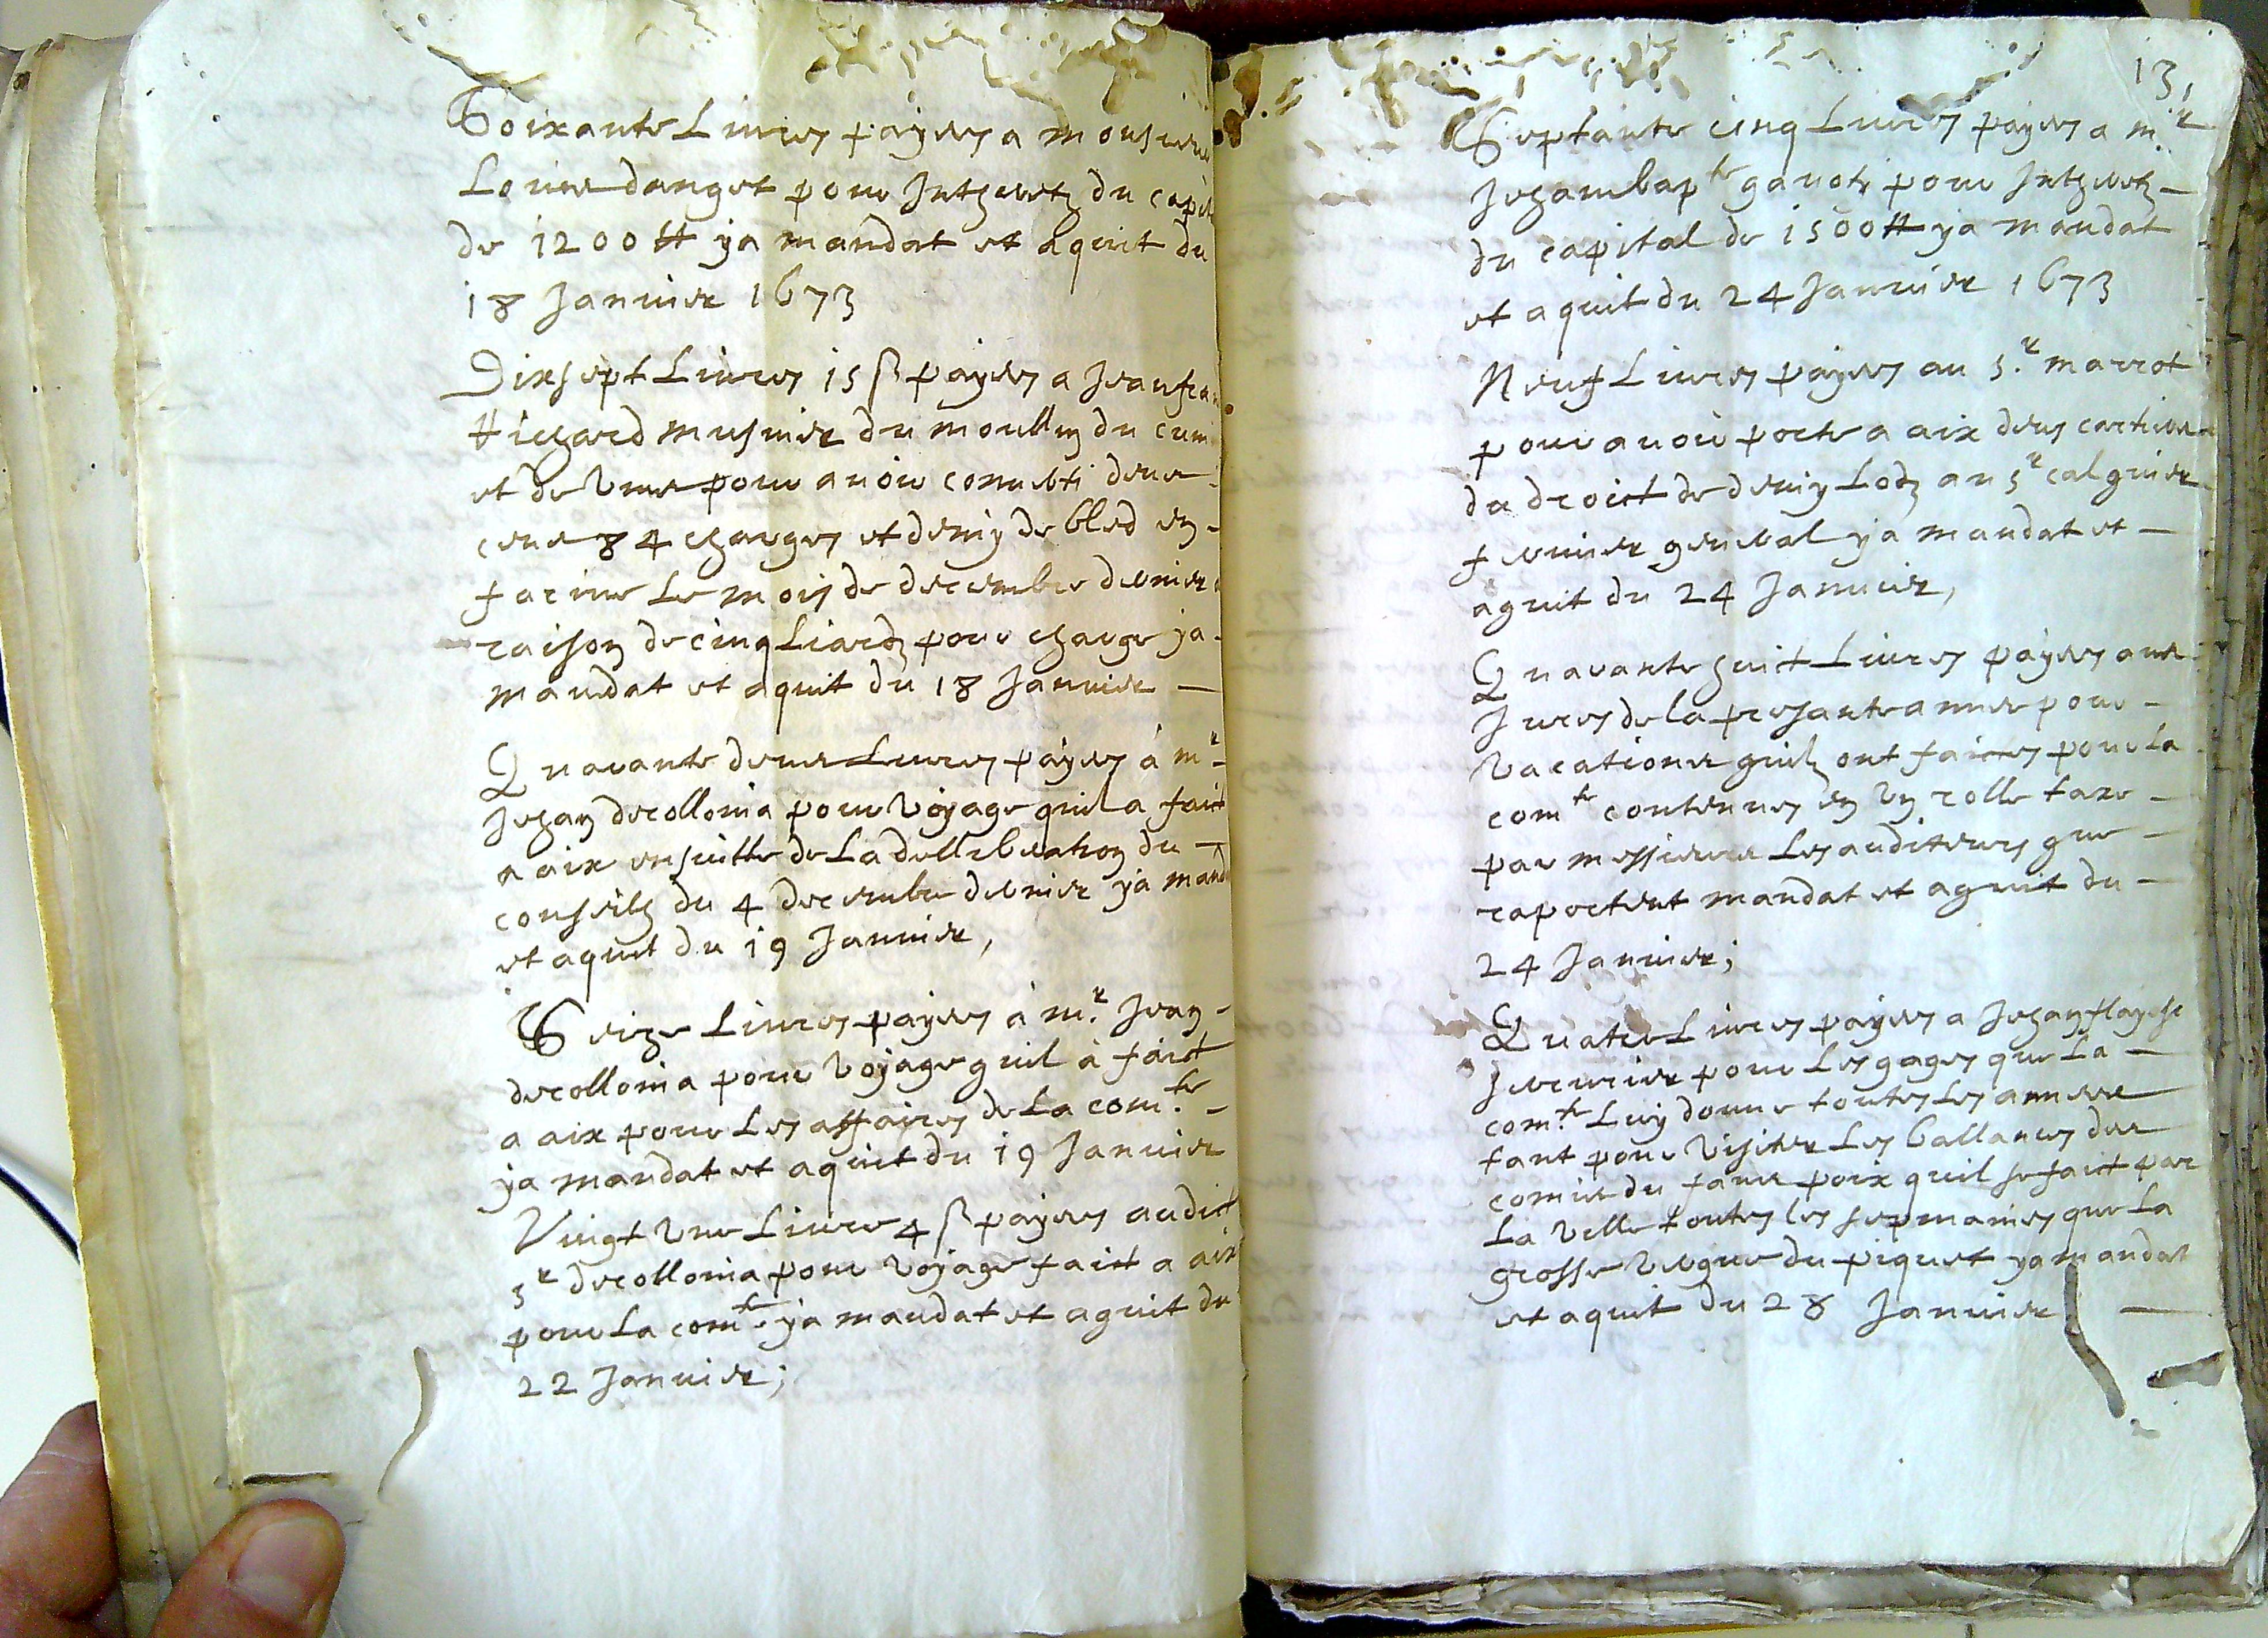 Soixante Livres payes a monsieur
Louis danget pour Intherestz du capi
de 1200 tt ya mandat et aquit du
18 Janvier 1673
Dixsept Livres 15 ß payes a Jean fran
musnier du moullin du
et de pour avoir converti
84 charges et demy de bled en
farine Le mois de decembre dernier a
raison de cinq Liardz pour charge ya
mandat et aquit du 18 Janvier
Quarante deux Livres payes à mr
Jehan decollonia pour voyage quil a faict
a aix ensuitte de La dellibera͠on du
conseilz du 4 decembre dernier ya mand
et aquit du 19 Janvier,
Seize Livres payes à mr. Jean
decollonia pour voyage quil à faict
a aix pour Les affaires de La com.te
ya mandat et aquit du 19 Janvier
Vingt Une Livre 4 ß payes audict
sr decollonia pour voyage faict a aix
pour La com.te ya mandat et aquit du
22 Janvier;
131
Septante cinq Livres payes a m.r
Jehan bapte gavoti pour Intherestz
du capital de 1500 tt ya mandat
et aquit du 24 Janvier 1673
Neuf Livres payes au s.r marrot
pour avoir porté a aix deux cartiers
du droict de demy Lodz au sr calguier
fermier general ya mandat et
aquit du 24 Janvier,
Quarante huit Livres payes aux
Jures de la presante annee pour
vacations quilz ont faictes pour La
comte contenues en un rolle taxé
par messieurs Les auditeurs que
raportent mandat et aquit du
24 Janvier;
Quatre Livres payes a Jehan flayosc
serrurier pour Les gages que La
com.te Luy donne toutes Les annees
tant pour visiter Les ballances des
comis du poix quil se faict par
La ville toutes les sepmaines que La
grosse du piquet ya mandat
et aquit du 28 Janvier